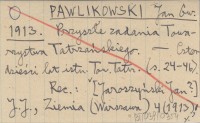 PAWLIKOWSKI Jan Gw.
1913. Przyszłe zadania Towa-
rzystwa Tatrzańskiego. — Czter-
dzieści lat istn. Tow. Tatr. (s. 24-46).
Rec.: [Jaroszyński Jan?]
J.J., Ziemia (Warszawa) 4 (1913)